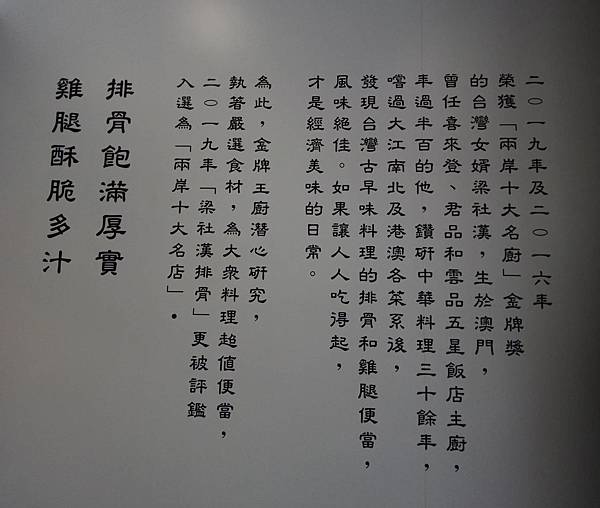 二〇一九年及二〇一六年
榮獲「兩岸十大名廚」金牌獎
的台灣女婿梁社漢，生於澳門，
曾任喜來登、君品和雲品五星飯店主廚，
年過半百的他，鑽研中華料理三十餘年，
嚐過大江南北及港澳各菜系後，
發現台灣古早味料理的排骨和雞腿便當，
風味絕佳。如果讓人人吃得起，
才是經濟美味的日常。
為此，金牌王廚潛心研究，
執著嚴選食材，為大眾料理超值便當，
二〇一九年「梁社漢排骨」更被評鑑
入選為「兩岸十大名店」。
排骨飽滿厚實
雞腿酥脆多汁